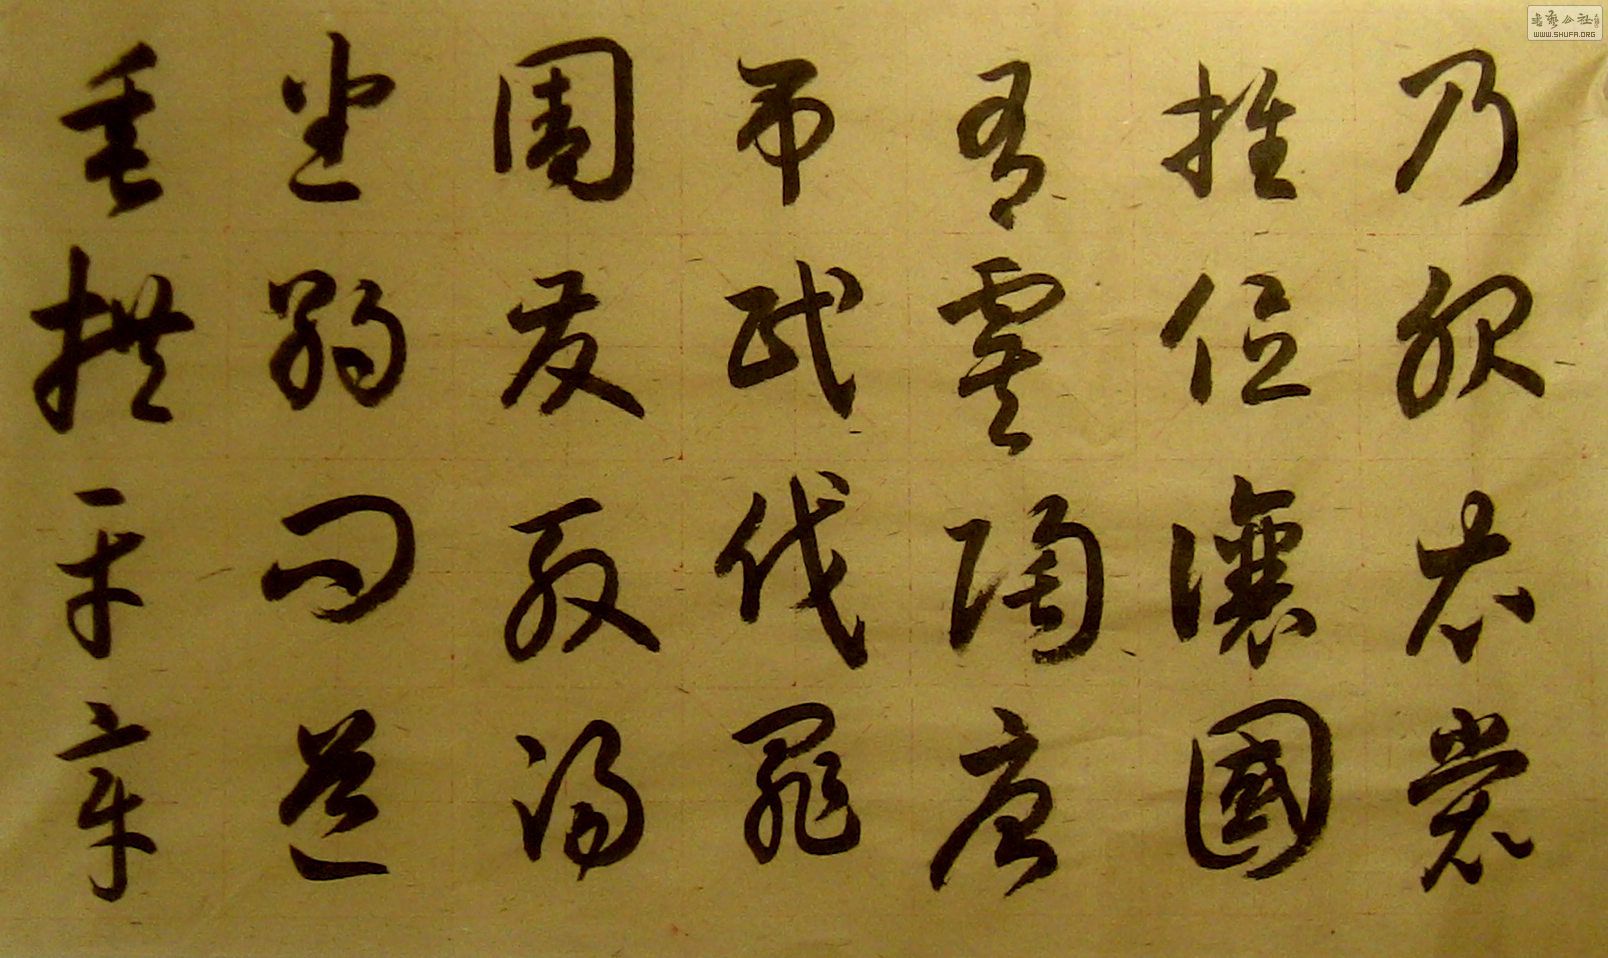 乃服衣裳
推位讓國
有虞陶唐
吊民伐罪
周發殷湯
坐朝問道
垂拱平章
書藝公社
WWW.SHUFA.ORG